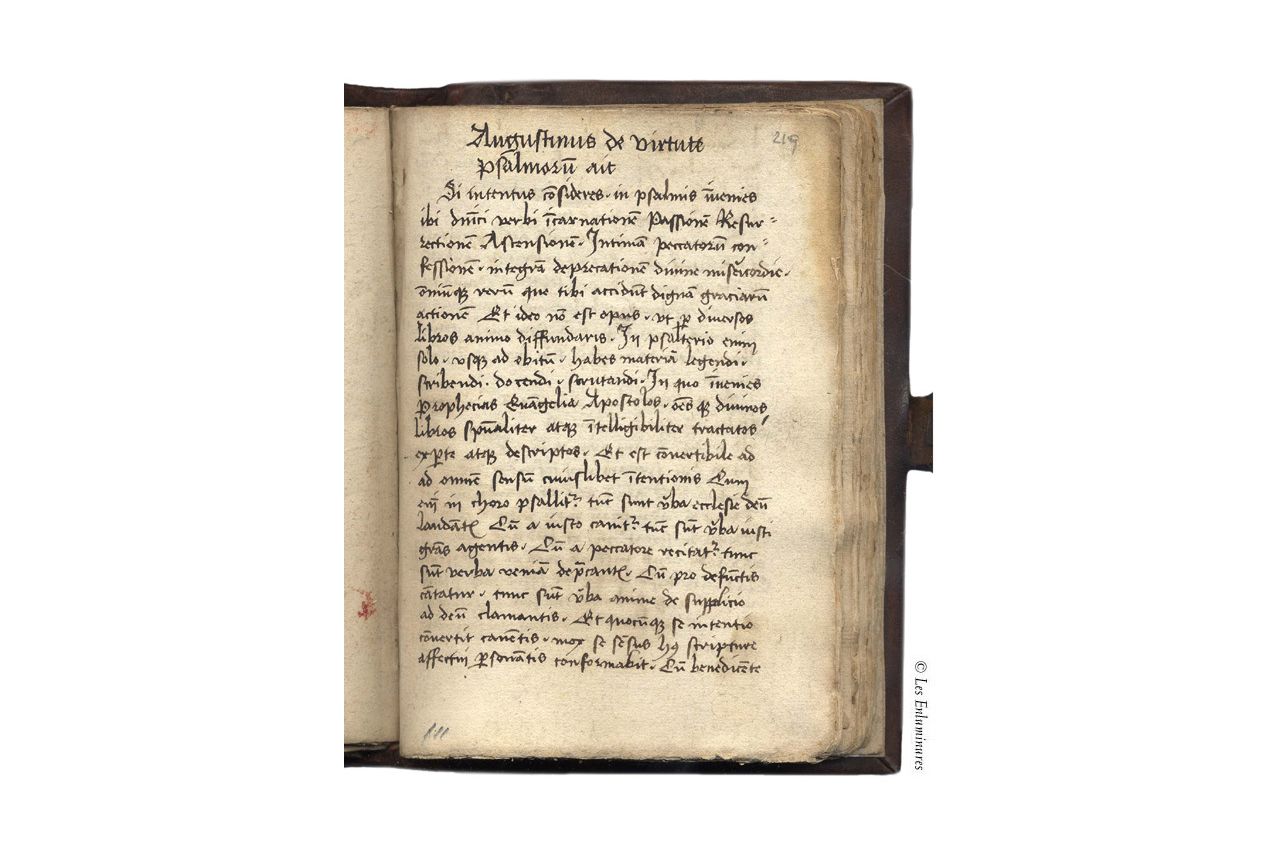 219
Augustinus de virtute
psalmorū ait
Si intentus cōsideres · in psalmis īuenies
ibi dn̄ici verbi īcarnationē Passionē Resur-
rectionē Ascensionē · Intimā peccatorū con-
fessionē · integrā deprecationē divine mis̄ericordie ·
omniūqꝫ rerū que tibi accidūt dignā graciarū
actionē Et ideo nō est opus · vt ꝑ diversos
libros animo diffundaris · In psalterio enim
solo · vsqꝫ ad obitū · habes materiā legendi ·
scribendi · docendi · scrutandi · In quo īuenies
Prophecias Evāgelia Apostolos · oēs qꝫ divinos
libros spūaliter atqꝫ ītelligibiliter tractatos
exꝑte atqꝫ descriptos · Et est cōvertibile ad
ad omnē sensū cuiuslibet ītentionis Cum
eī in choro psallitᷣ · tūc sunt v̄ba ecclesie deū
laudātꝭ Cū a iusto canitᷣ · tūc sūt v̄ba iusti
grās agentis · Cū a peccatore recitatᷣ · tunc
sūt verba veniā dep̄cantꝭ · Cū pro defūctis
cātatur · tunc sūt v̄ba anime de supplicio
ad deū clamantis · Et quocūqꝫ se intentio
cōvertit canētis · mox se sēsus hꝰ scripture
affectui ꝑsonātis conformabit · Cū benedicēte
© Les Enluminures